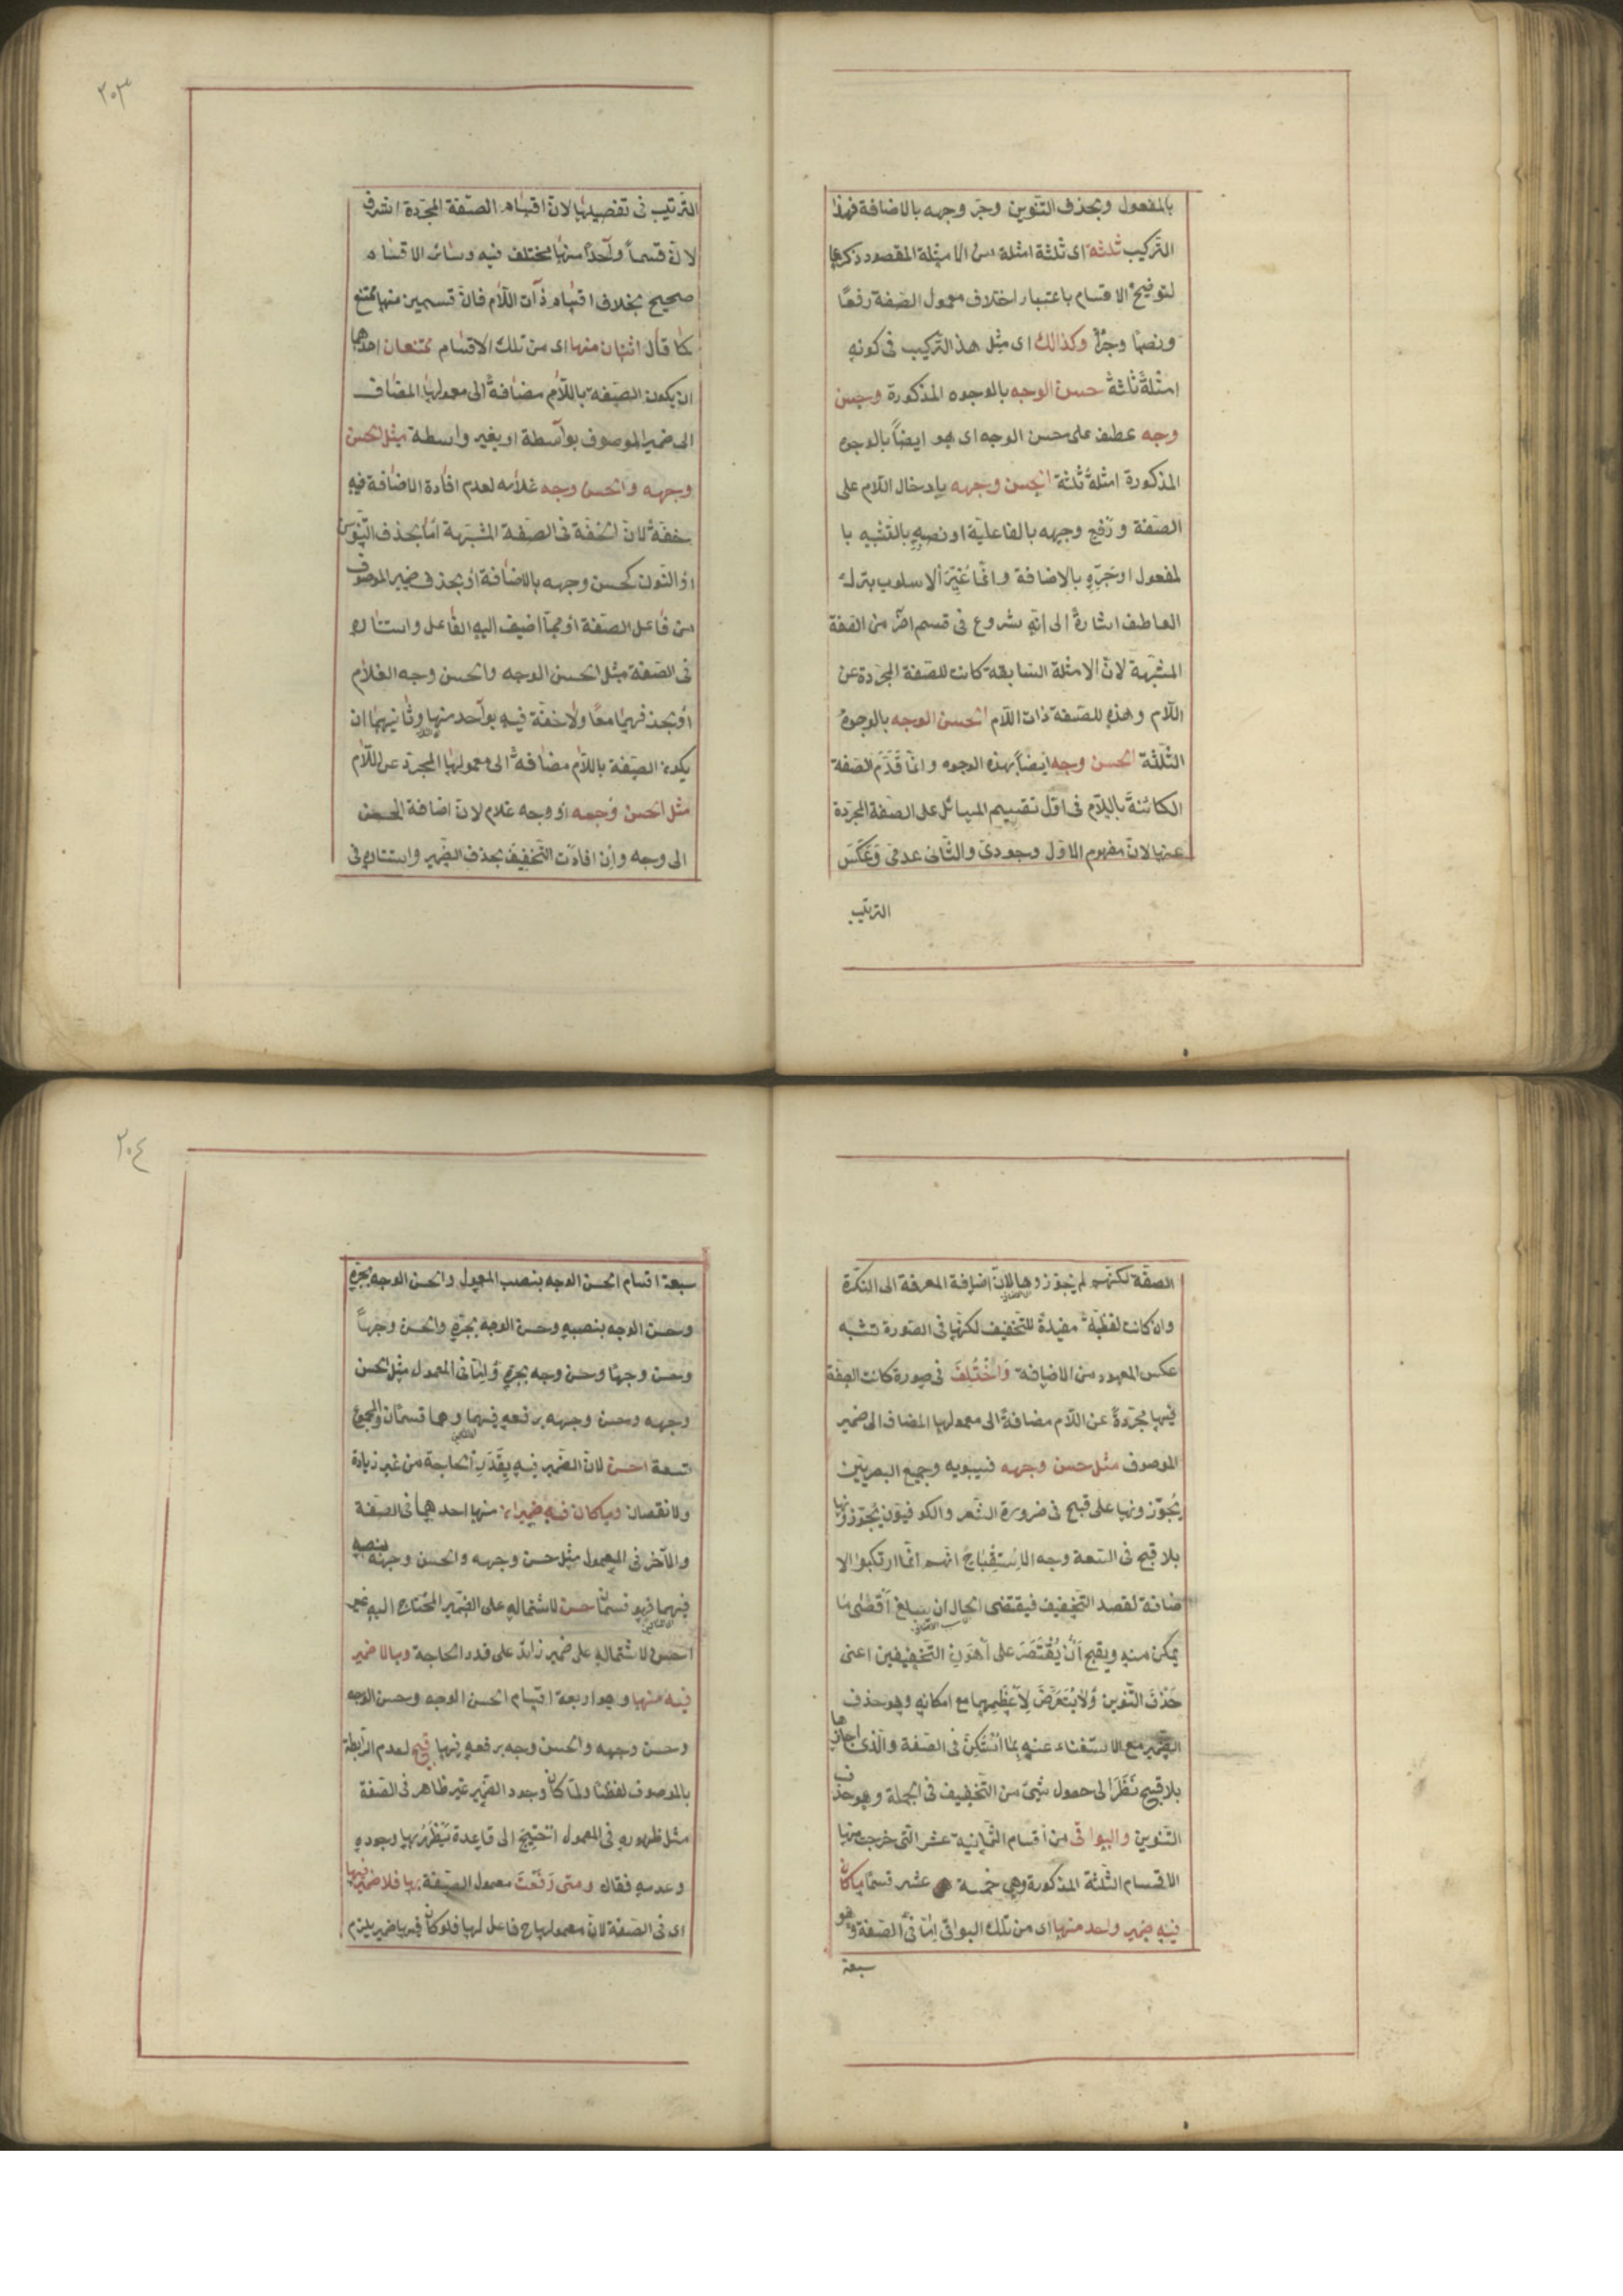 بالمفعول وبحذف التنوين وجر وجهه بالاضافة فهذا
التركيب ثلثة اى ثلثة امثلة من الامثلة المقصود ذكرها
لتوضيح الاقسام باعتبار اختلاف معمول الصفة رفعا
ونصبا وجرا وكذالك اى مثل هذ التركيب فى كونه
امثلة ثلثة حسن الوجه بالوجوه المذكورة وحسن
وجه عطف على حسن الوجه اى هو ايضاً بالوجوه
المذكورة امثلة ثلثة الحسن وجهه بادخال اللام على
الصفة ورفع وجهه بالفاعلية او نصبه بالتشبيه با
لمفعول او جره بالاضافة وانما غير الاسلوب بترك
العاطف اشارة الى انه شروع فى قسم اخر من الصفة
المشبهة لان الامثلة السابقه كانت للصفة المجردة عن
اللام وهذه للصفة ذات اللام الحسن الوجه بالوجوه
الثلثة الحسن وجه ايضاً بهذه الوجوه وانما قدم الصفة
الكائنة باللام فى اول تقسيم المسائل على الصفة المجردة
عنها لان مفهوم الاول وجودى والثانى عدمى وعكس
الترتيب
٢٠٣
الترتيب فى تفصيلها لان اقسام الصفة المجردة اشرف
لان قسماً واحداً منها مختلف فيه وسائر الاقسام
صحيح بخلاف اقسام ذات اللام فان قسمين منها ممتنع
كما قال اثنان منها اى من تلك الاقسام ممتنعان احدهما
ان يكون الصفة باللام مضافة الى معمولها المضاف
الى ضمير الموصوف بواسطة او بغير واسطة مثل الحسن
وجهه والحسن وجه غلامه لعدم افادة الاضافة فيه
خفة لان الخفة فى الصفة المشبهة اما بحذف التنوين
او النون كحسن وجهه بالاضافة او بحذف ضمير الموصوف
من فاعل الصفة او مما اضيف اليه الفاعل واستتاره
فى الصفة مثل الحسن الوجه والحسن وجه الغلام
او بحذفهما معا ولا خفة فيه بواحد منها وثانيهما ان
يكون الصفة باللام مضافة الى معمولها المجرد عن اللام
مثل الحسن وجهه او وجه غلام لان اضافة الحسن
الى وجه وان افادت التخفيف بحذف الضمير واستتاره فى
الصفة لكنهم لم يجوزوها لان اضافة المعرفة الى النكرة
وان كانت لفظية مفيدة للتخفيف لكنها فى الصورة تشبه
عكس المعهود من الاضافة واختلف فى صورة كانت الصفة
فيها مجردة عن اللام مضافة الى معمولها المضاف الى ضمير
الموصوف مثل حسن وجهه فسيبويه وجميع البصريين
يجوزونها على قبح فى ضرورة الشعر والكوفيون يجوزونها
بلا قبح فى السعة وجه الاستقباح انهم انما ارتكبوا الا
ضافة لقصد التخفيف فيقتضى الحال ان يبلغ اقصى ما
يمكن منه ويقبح ان يقتصر على اهون التخفيفين اعنى
حذف التنوين ولا يتعرض لاعظمهما مع امكانه وهو حذف
الضمير مع الاستغناء عنه بما استكن فى الصفة والذى اجازها
بلا قبح نظرا الى حصول شئ من التخفيف فى الجملة وهو حذف
التنوين والبواقى من اقسام الثمانية عشر التى خرجت منها
الاقسام الثلثة المذكورة وهى خمسة عشر قسما ما كان
فيه ضمير واحد منها اى من تلك البواقى اما فى الصفة وهو
سبعة
٢٠٤
سبعة اقسام الحسن الوجه بنصب المعمول والحسن الوجه بجره
وحسن الوجه بنصبه وحسن الوجه بجره والحسن وجهاً
وحسن وجها وحسن وجه بجره واما فى المعمول مثل الحسن
وجهه وحسن وجهه برفعه فيهما وهما قسمان والمجموع
تسعة احسن لان الضمير فيه بقدر الحاجة من غير زيادة
ولا نقصان وما كان فيه ضميران منها احدهما فى الصفة
والآخر فى المعمول مثل حسن وجهه والحسن وجهه بنصبه
فيهما فهو قسمان حسن لاشتماله على الضمير المحتاج اليه غير
احسن لاشتماله على ضمير زايد على قدر الحاجة وما لا ضمير
فيه منها وهو اربعة اقسام الحسن الوجه وحسن الوجه
وحسن وجهه والحسن وجه برفعه فيها قبيح لعدم الرابطة
بالموصوف لفظا ولما كان وجود الضمير غير ظاهر فى الصفة
مثل ظهوره فى المعمول احتيج الى قاعدة يظهر بها وجوده
وعدمه فقال ومتى رفعت معمول الصفة بها فلا ضمير فيها
اى فى الصفة لان معمولها ح فاعل لها فلو كان فيها ضمير يلزم